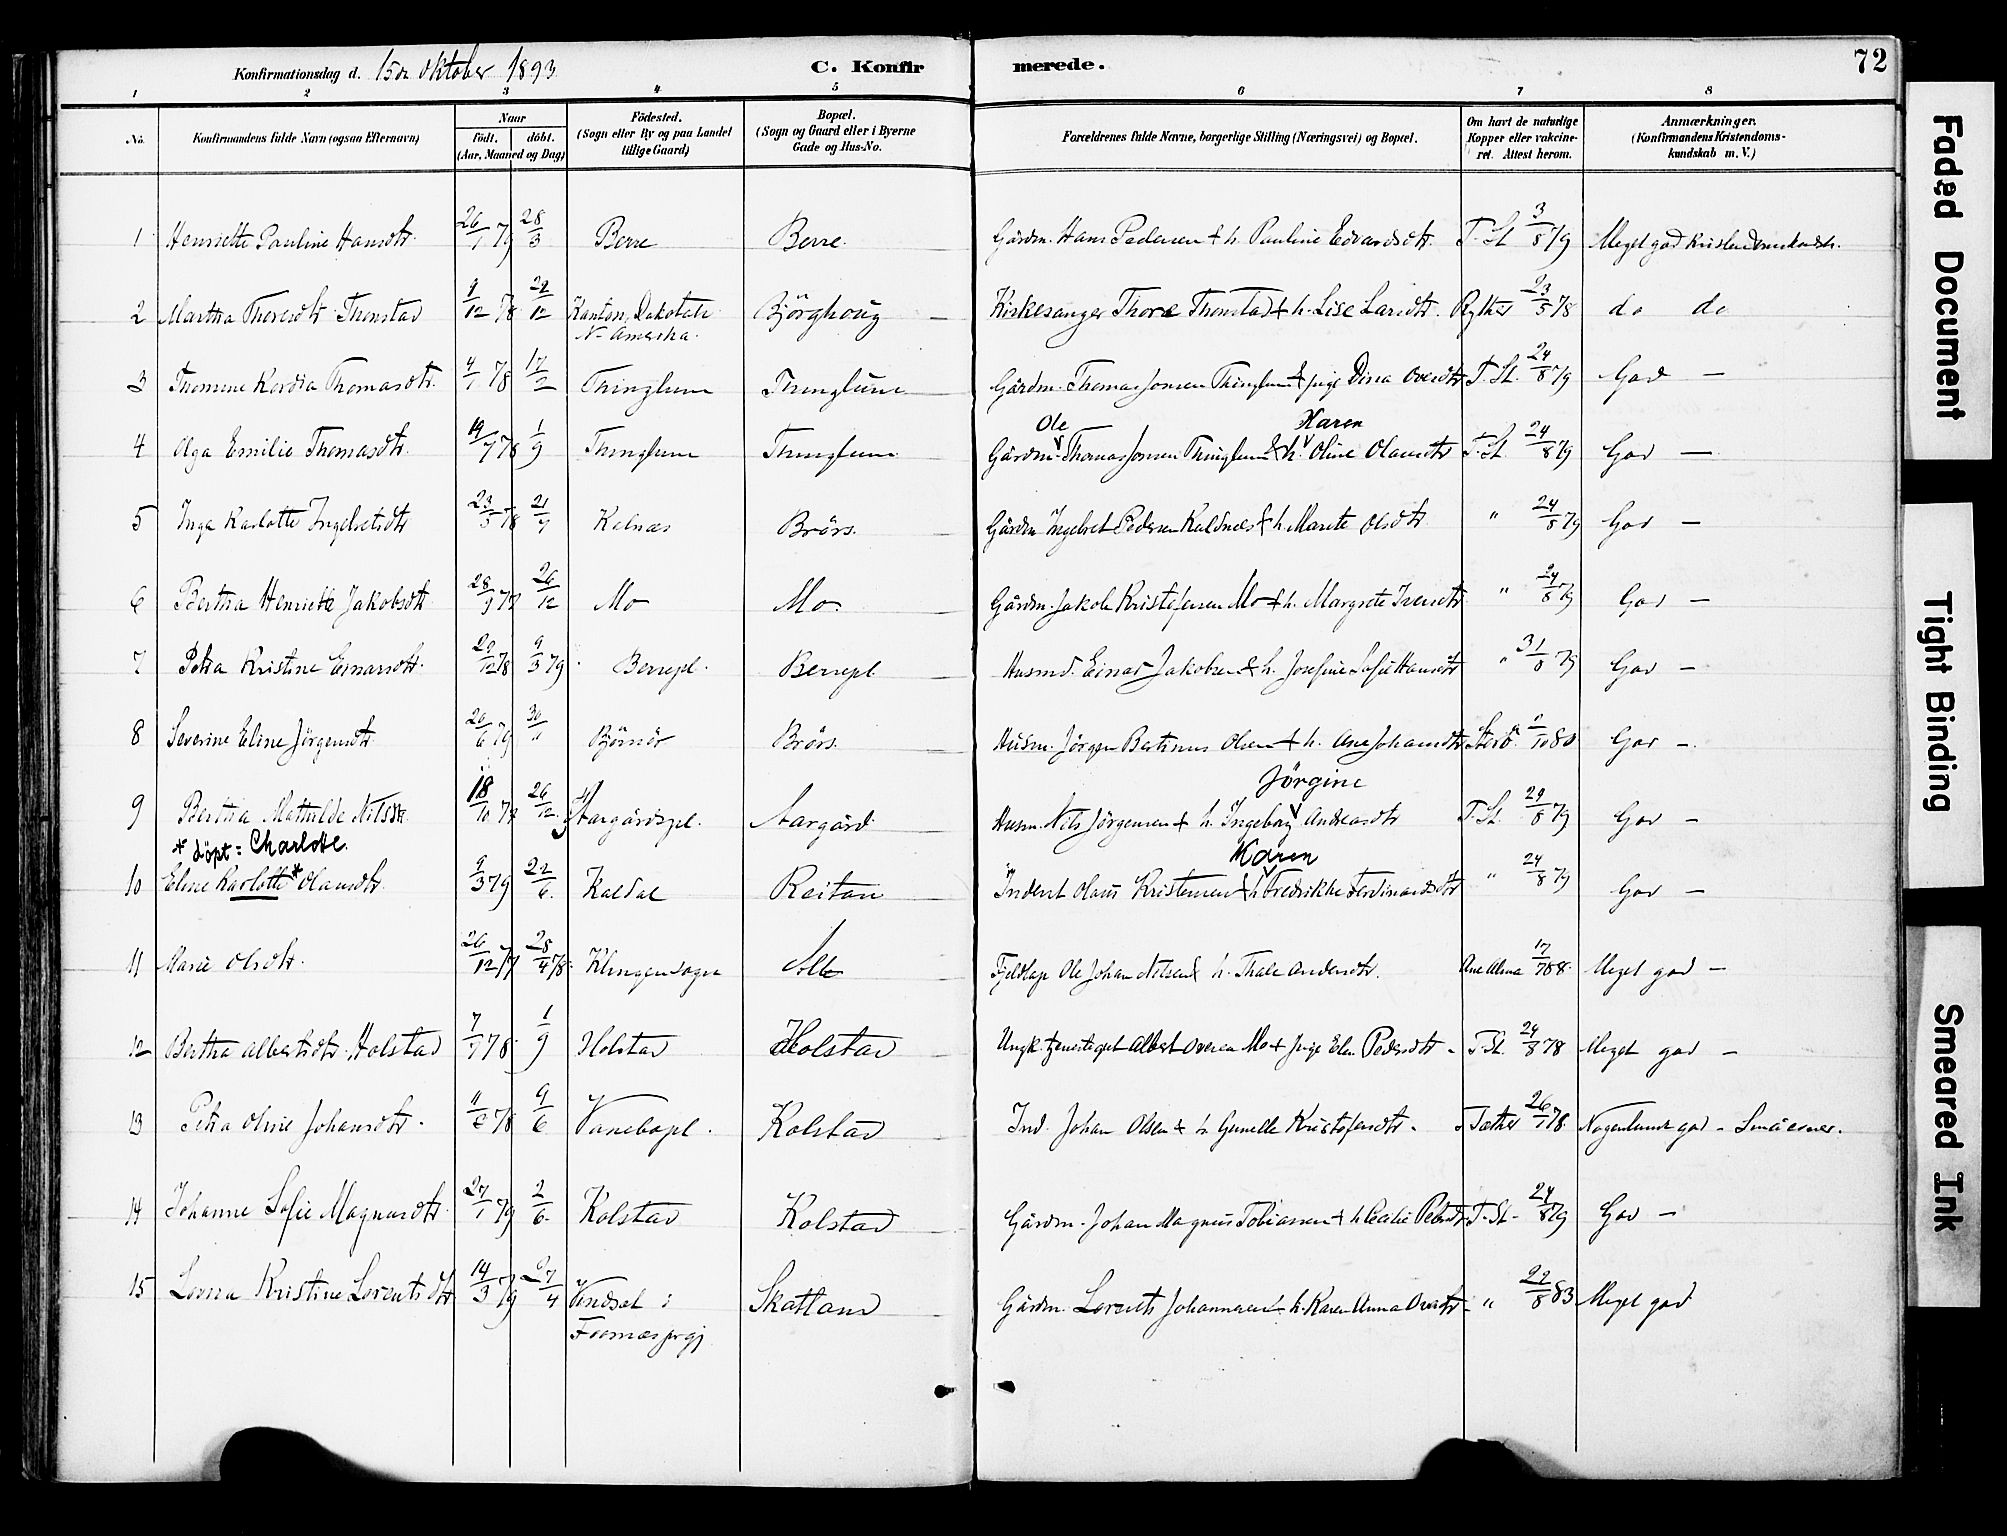 Konfirmationsdag d. 15de Oktober 1893
C. Konfir merede. 72
1 2 3 4 5 6 7 8
No. Konfirmandens fulde Navn (ogsaa Efternavn) Naar født. døbt. (Aar, Maaned og Dag) Fødested. (Sogn eller By og paa Landet tillige Gaard) Bopæl. (Sogn og Gaard eller i Byerne Gade og Hus-No. Forældrenes fulde Navne, borgerlige Stilling (Næringsvei) og Bopæl. Om havt de naturlige Kopper eller vakcineret. Attest herom. Anmærkninger. (Konfirmandens Kristendomskundskab m. V.)
1 Henriette Pauline Hansdtr. 26/1 79 28/3 Berre Berre. Gårdm. Hans Pedersen & h. Pauline Edvardsdtr. T. St. 3/8 79 Meget god Kristendomskundsk.
2 Martha Thoresdtr. Thonstad 9/12 78 29/12 Kanton, Dakotah N. Amerika. Bjørghoug Kirkesanger Thore Thonstad & h. Lise Larsdtr. Rylter 23/5 78 do do
3 Thomine Kordia Thomasdtr. 4/1 78 17/2 Thinglum Thinglum Gårdm. Thomas Jonsen Thinglum & pige Dina Ovesdtr T. St. 24/8 79 God —
4 Olga Emilie Thomasdtr. 19/7 78 1/9 Thinglum Thinglum Gårdm. Ole Thomas Jonsen Thinglum & h. Karen Oline Olausdtr T. St. 24/8 79 God —
5 Inga Karlotte Ingebretsdtr 23/5 78 21/7 Kelnæs Brørs. Gårdm Ingebret Pedersen Kaldnæs & h. Marete Olsdtr " 24/8 79 God —
6 Bertha Henriette Jakobsdtr 28/9 78 26/12 Mo Mo. Gårdm. Jakob Kristofersen Mo & h. Margrete Iversdtr " 24/8 79 God —
7 Petra Kristine Einarsdtr. 29/12 78 9/3 79 Berrepl. Berrepl. Husmd. Einar Jakobsen & h. Josefine Sofie Hansdtr " 31/8 79 God —
8 Severine Eline Jörgensdtr 20/6 79 30/" Björnör Brørs. Husm. Jörgen Bertinus Olsen & h. Ane Johansdtr 2/10 80 God —
9 Bertha Mathilde Nilsdtr. 18/10 78 26/12 Aargårdspl. Aargård Husm. Nils Jörgensen & h. Ingeborg Jörgine Andreasdtr T. St. 29/8 79 God —
* døpt: Charlotte.
10 Eline Karlotte* Olausdtr. 9/3 79 22/6 Kaldal Reitan Inderst Olaus Kristensen & h. Karen Fredrikke Ferdinandsdtr " 24/8 79 God —
11 Marie Olsdtr. 26/12 77 28/4 78. Klingensogn Fjeldlap Ole Johan Nilsen & h. Thale Andersdtr. Ane Alma 17/7 88. Meget god —
12 Bertha Albertsdtr. Holstad 7/7 78 1/9 Holstad Holstad Ungk. tjenestegut Albert Ovesen Mo & pige Elen Pedersdtr. T. St. 24/8 78 Meget god —
13 Petra Oline Johansdtr. 78 9/6 Vanebopl. Kolstad Ind. Johan Olsen & h Gunelle Kristofersdtr. Tæther 26/7 78 Nogenlunde god —
14 Johanne Sofie Magnusdtr. 27/1 79 2/6. Kolstad Kolstad Gårdm. Johan Magnus Tobiassen & h Cecilie Petersdtr T. St. 24/8 79 God —
15 Lovisa Kristine Lorentsdtr 14/3 79 27/4 Vindset i Foosnæs prgj Skatland Gårdm. Lorents Johannesen & h. Karen Anna Ovesdtr — " 22/8 83 Meget god
Faded Document
Tight Binding
Smeared Ink